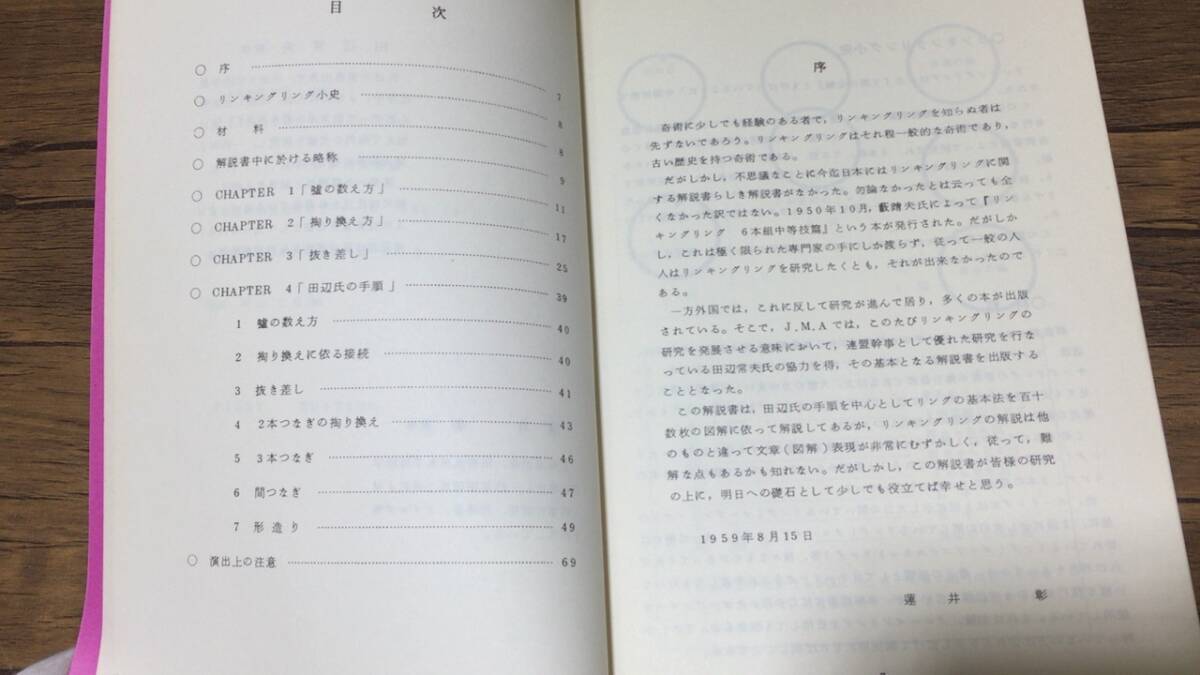 目　次
○ 序 7
○ リンキングリング小史 8
○ 材　料 8
○ 解説書中に於ける略称 9
○ CHAPTER 1「嘘の数え方」 11
○ CHAPTER 2「掏り換え方」 17
○ CHAPTER 3「抜き差し」 25
○ CHAPTER 4「田辺氏の手順」 39
1 嘘の数え方 40
2 掏り換えに依る接続 40
3 抜き差し 41
4 2本つなぎの掏り換え 43
5 3本つなぎ 46
6 間つなぎ 47
7 形造り 49
○ 演出上の注意 69
序
奇術に少しでも経験のある者で，リンキングリングを知らぬ者は
先ずないであろう。リンキングリングはそれ程一般的な奇術であり，
古い歴史を持つ奇術である。
だがしかし，不思議なことに今迄日本にはリンキングリングに関
する解説書らしき解説書がなかった。勿論なかったとは云っても全
くなかった訳ではない。1950年10月，藪晴夫氏によって『リン
キングリング　6本組中等技篇』という本が発行された。だがしか
し，これは極く限られた専門家の手にしか渡らず，従って一般の人
人はリンキングリングを研究したくとも，それが出来なかったので
ある。
一方外国では，これに反して研究が進んで居り，多くの本が出版
されている。そこで，J.M.Aでは，このたびリンキングリングの
研究を発展させる意味において，連盟幹事として優れた研究を行な
っている田辺常夫氏の協力を得，その基本となる解説書を出版する
こととなった。
この解説書は，田辺氏の手順を中心としてリングの基本法を百十
数枚の図解に依って解説してあるが，リンキングリングの解説は他
のものと違って文章（図解）表現が非常にむずかしく，従って，難
解な点もあるかも知れない。だがしかし，この解説書が皆様の研究
の上に，明日への礎石として少しでも役立てば幸せと思う。
1959年8月15日
蓮　井　　彰